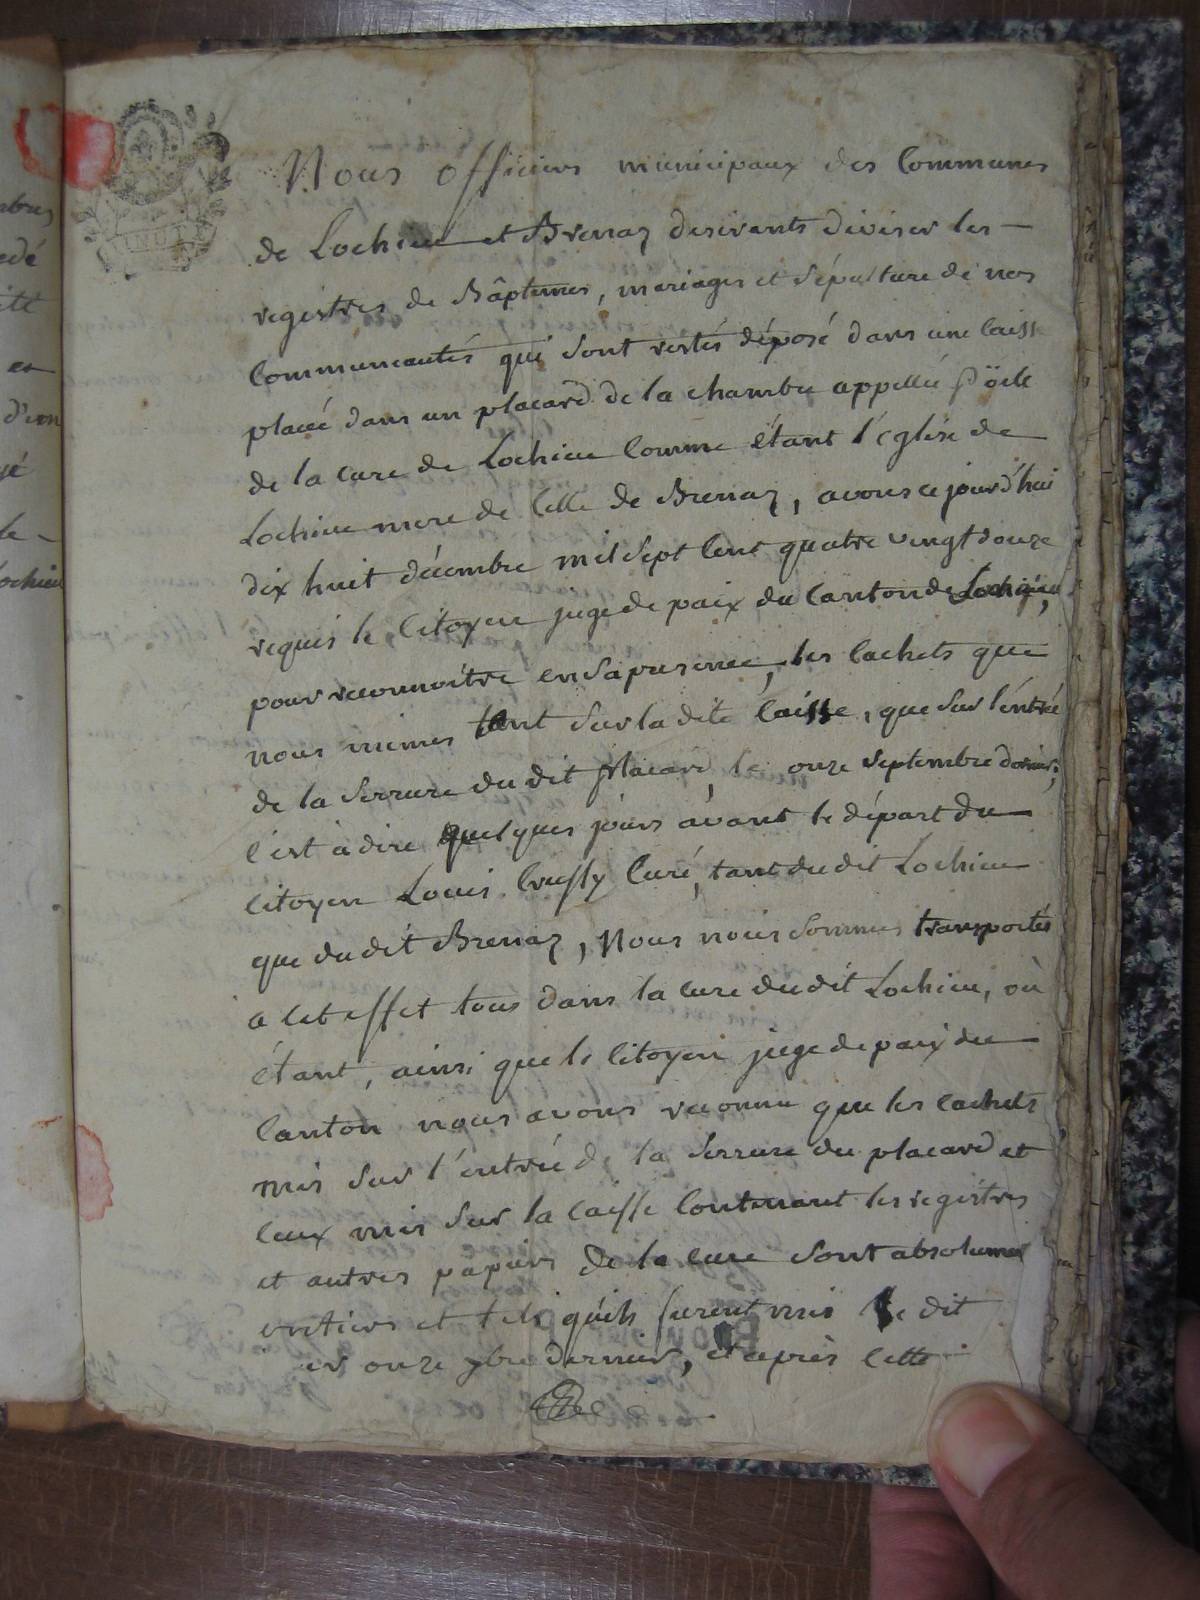 MINUTE
Nous officiers municipaux des Communes
de Lochieu et Brenaz desirants diviser les
registres de Bâptemes, mariages et Sépulture de nos
Communeautés qui sont restés déposé dans une Caisse
placée dans un placard de la chambre appellée Pöele
de la cure de Lochieu Comme étant l'église de
Lochieu mere de Celle de Brenaz, avons ce jourd'hui
dix huit décembre mil sept Cent quatre vingt douze
requis le Citoyen juge de paix du Canton de Lochieu,
pour reconnoitre en sa presence, les Cachets que
nous mimes tant sur la dite Caisse, que sur l'entrée
de la Serrure du dit placard, le onze Septembre dernier,
C'est à dire quelques jours avant le départ du
Citoyen Louis Crussy Curé, tant du dit Lochieu
que du dit Brenaz, Nous nous sommes transportés
a Cet effet tous dans la cure du dit Lochieu, où
étant, ainsi que le Citoyen juge de paix du
Canton nous avons reconnu que les cachets
mis sur l'entrée de la Serrure du placard et
Ceux mis sur la Caisse Contenant les registres
et autres papiers de la cure sont absolument
entiers et tels qu'ils furent mis le dit
onze 7bre dernier, et après Cette